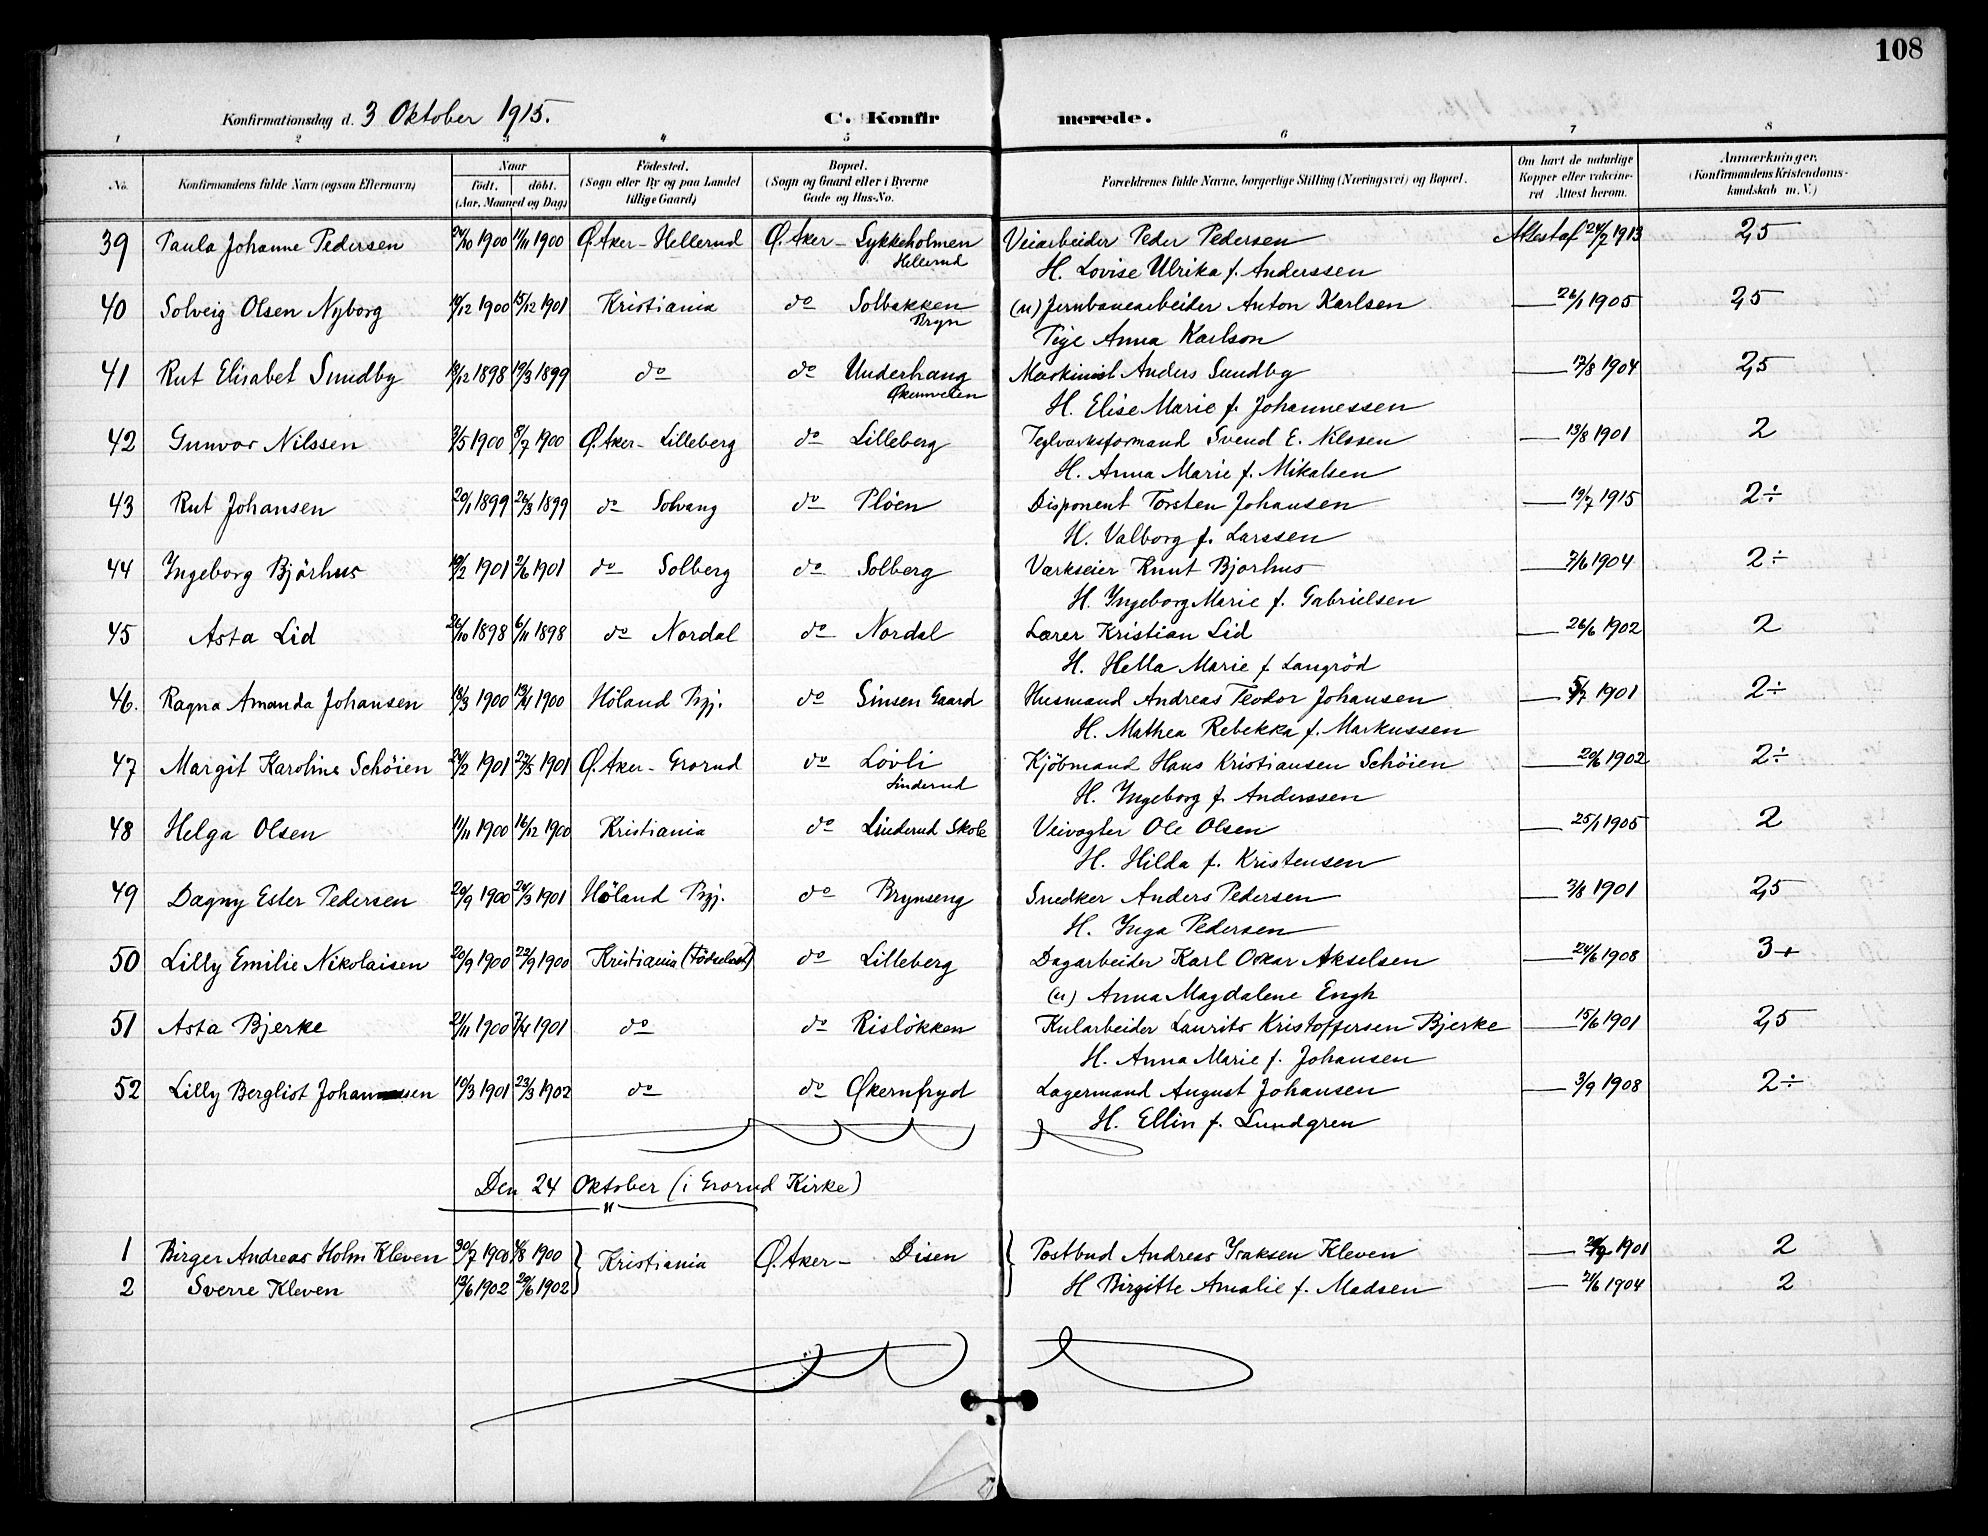 108
Konfirmationsdag d. 3 Oktober 1915. C. Konfirmerede.
1 2 3 4 5 6 7 8
No. Konfirmandens fulde Navn (ogsaa Efternavn) Naar født. døbt. (Aar, Maaned og Dag) Födested. (Sogn eller By og paa Landet tillige Gaard) Bopæl. (Sogn og Gaard eller i Byerne Gade og Hus-No. Forældrenes fulde Navne, borgerlige Stilling (Næringsvei) og Bopæl. Om havt de naturlige Kopper eller vakcineret Attest herom. Anmærkninger, (Konfirmandens Kristendomskundskab m. V.)
39 Paula Johanne Pedersen 24/10 1900 11/11 1900 Ø. Aker - Hellerud Ø. Aker - Lykkeholmen Veiarbeider Peder Pedersen Attest af 24/7 1913 2,5
Hellerud H. Lovise Ulrika f. Anderssen
40 Solveig Olsen Nyborg 19/12 1900 15/12 1901 Kristiania do Solbakken (u) Jernbanearbeider Anton Karlsen — 26/1 1905 2,5
Bryn Pige Anna Karlson
41 Rut Elisabet Sundby 19/12 1898 19/3 1899 do do Underhaug Maskinist Anders Sundby — 17/8 1904 2,5
Økernveien H. Elise Marie f. Johannessen
42 Gunvor Nilssen 2/5 1900 8/7 1900 Ø. Aker - Lilleberg do Lilleberg Teglverksformand Svend E. Nilssen — 13/8 1901 2
H. Anna Marie f. Mikalsen
43 Rut Johansen 20/1 1899 26/3 1899 do Solvang do Pløen Disponent Torsten Johansen — 19/7 1915 2÷
H. Valborg f. Larssen
44 Ingeborg Bjørhus 19/2 1901 2/6 1901 do Solberg do Solberg Værkseier Knut Bjorhus — 7/6 1904 2÷
H. Ingeborg Marie f. Gabrielsen
45 Asta Lid 26/10 1898 6/11 1898 do Nordal do Nordal Lærer Kristian Lid — 26/6 1902 2
H. Hella Marie f Langröd
46. Ragna Amanda Johansen 18/3 1900 13/4 1900 Höland Pgj. do Sinsen Gaard Husmand Andreas Teodor Johansen — 5/7 1901 2÷
H. Mathea Rebekka f. Markussen
47 Margit Karoline Schöien 24/2 1901 27/5 1901 Ø. Aker - Grorud do Lövli Kjöbmand Hans Kristiansen Schöien — 20/6 1902 2÷
Linderud H. Ingeborg f. Anderssen
48 Helga Olsen 11/11 1900 16/12 1900 Kristiania do Linderud Skole Veivogter Ole Olsen — 25/1 1905 2
H. Hilda f. Kristensen
49 Dagny Ester Pedersen 20/9 1900 24/3 1901 Höland Pgj. do Brynseng Snedker Anders Pedersen — 2/8 1901 2,5
H. Inga Pedersen
50 Lilly Emilie Nikolaisen 20/9 1900 22/9 1900 Kristiania (Födselsst) do Lilleberg Dagarbeider Karl Oskar Akselsen — 24/6 1908 3+
(u) Anna Magdalene Engh
51 Asta Bjerke 21/11 1900 7/4 1901 do do Rislökken Kularbeider Laurits Kristoffersen Bjerke — 15/6 1901 2,5
H. Anna Marie f. Johansen
52 Lilly Bergliot Johansen 10/3 1901 23/3 1902 do do Økernfryd Lagermand August Johansen — 3/9 1908 2÷
H. Ellin f. Lundgren
Den 24 Oktober (i Grorud Kirke)
1 Birger Andreas Holm Kleven 30/7 1900 /8 1900 } Kristiania Ø. Aker - Disen } Postbud Andreas Isaksen Kleven — 1901 2
2 Sverre Kleven 19/6 1902 29/6 1902 H Birgitte Amalie f. Madsen — 21/6 1904 2